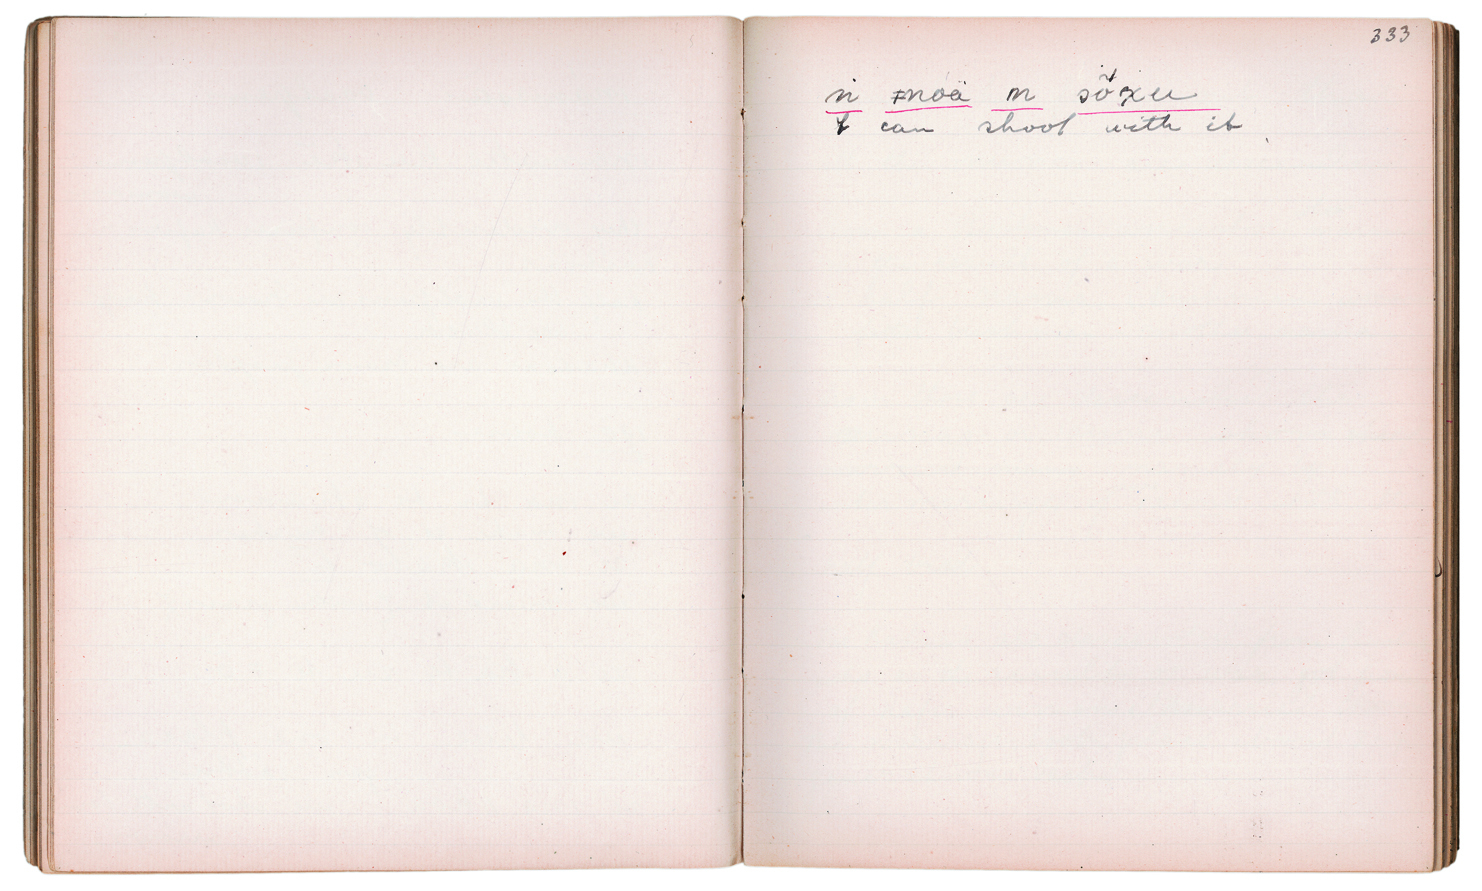 333
ṅ ǂnoä m sǒ̈χu
I can shoot with it